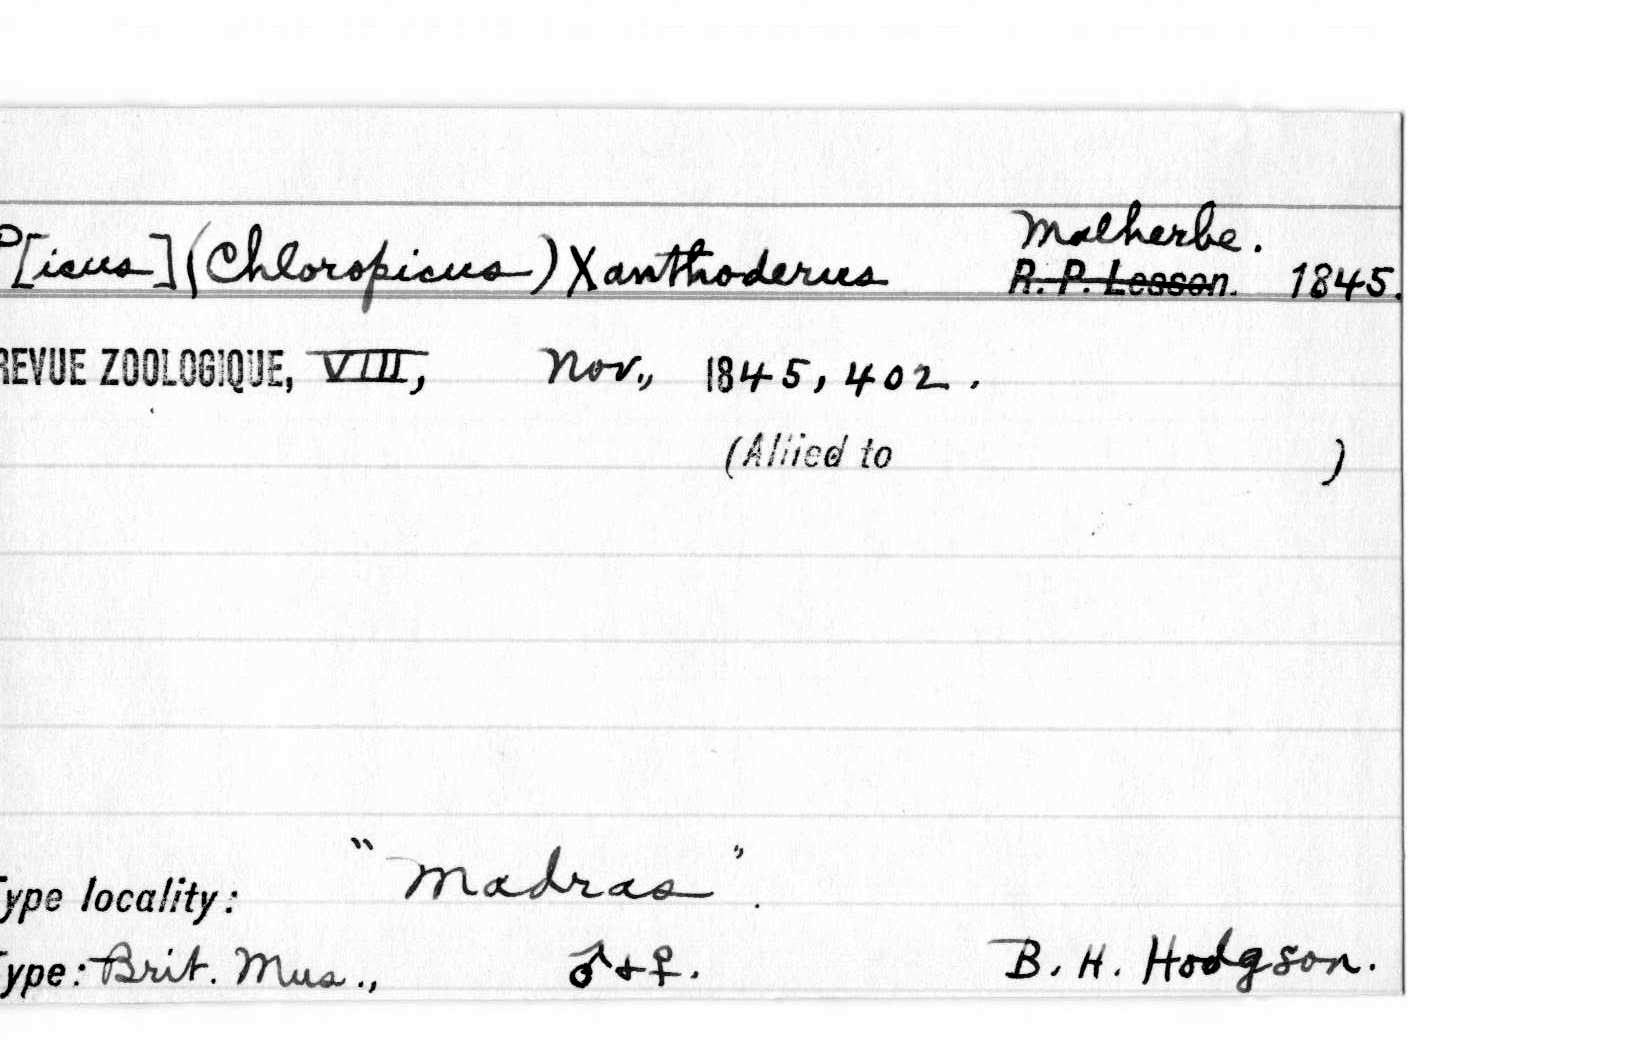 Malherbe.
P[icus] (Chloropicus) Xanthoderus R. P. Lesson. 1845.
REVUE ZOOLOGIQUE, VIII, Nov., 1845, 402.
(Allied to )
"Madras".
Type locality:
Type: Brit. Mus., ♂+♀. B. H. Hodgson.